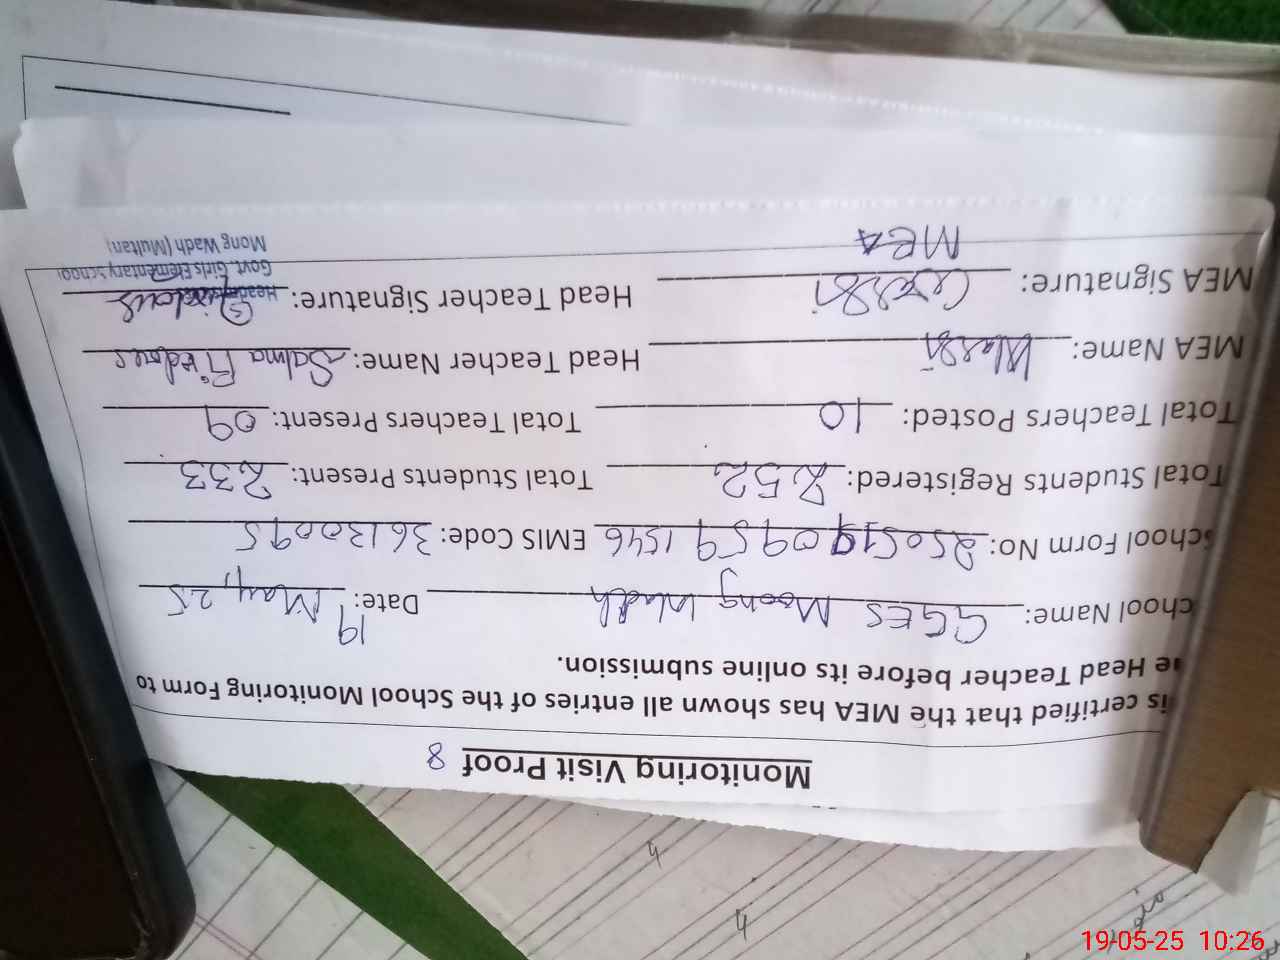 Monitoring Visit Proof 8
is certified that the MEA has shown all entries of the School Monitoring Form to
Head Teacher before its online submission.
School Name: GGES Moong Wadh Date: 19 May, 25
School Form No: 25051909591546 EMIS Code: 36130095
Total Students Registered: 252 Total Students Present: 233
Total Teachers Posted: 10 Total Teachers Present: 09
MEA Name: Head Teacher Name: Salma Firdous
MEA Signature: Head Teacher Signature: Firdous
MEA
Govt. Girls Elementary School
Mong Wadh (Multan)
19-05-25 10:26